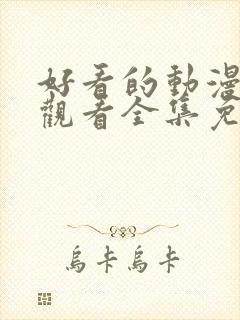 好看的動漫
觀看全集免
烏卡烏卡